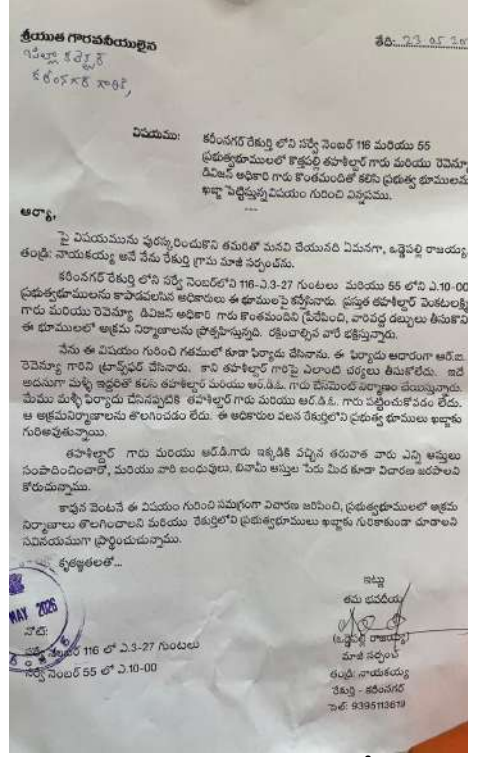 శ్రీయుత గౌరవనీయులైన
తేది: 23 05 20
జిల్లా కలెక్టర్
కరీంనగర్ గారికి,
విషయము: కరీంనగర్ రేకుర్తి లోని సర్వే నెంబర్ 116 మరియు 55
ప్రభుత్వభూములలో కొత్తపల్లి తహశిల్దార్ గారు మరియు రెవెన్యూ
డివిజన్ అధికారి గారు కొంతమందితో కలిసి ప్రభుత్వ భూములను
ఖబ్జా పెట్టిస్తున్నవిషయం గురించి విన్నపము.
---
ఆర్యా,
పై విషయమును పురస్కరించుకొని తమరితో మనవి చేయునది ఏమనగా, ఒడ్డెపల్లి రాజయ్య
తండ్రి: నాయకయ్య అనే నేను రేకుర్తి గ్రామ మాజీ సర్పంచ్‌ను.
కరీంనగర్ రేకుర్తి లోని సర్వే నెంబర్‌లోని 116-ఎ.3-27 గుంటలు మరియు 55 లోని ఎ.10-00
ప్రభుత్వభూములను కాపాడవలసిన అధికారులు ఈ భూములపై కన్నేసినారు. ప్రస్తుత తహశిల్దార్ వెంకటలక్ష్మి
గారు మరియు రెవెన్యూ డివిజన్ అధికారి గారు కొంతమందిని ప్రేరేపించి, వారివద్ద డబ్బులు తీసుకొని
ఈ భూములలో అక్రమ నిర్మాణాలను ప్రోత్సహిస్తున్నది. రక్షించాల్సిన వారే భక్షిస్తున్నారు.
నేను ఈ విషయం గురించి గతములో కూడా ఫిర్యాదు చేసినాను. ఈ ఫిర్యాదు ఆధారంగా ఆర్.ఐ.
రెవెన్యూ గారిని ట్రాన్స్‌ఫర్ చేసినారు. కాని తహశిల్దార్ గారిపై ఎలాంటి చర్యలు తీసుకోలేదు. ఇదే
అదనుగా మళ్ళీ ఇద్దరితో కలిసి తహశిల్దార్ మరియు ఆర్.డి.ఓ. గారు బేస్‌మెంట్ నిర్మాణం చేయిస్తున్నారు.
మేము మళ్ళీ ఫిర్యాదు చేసినప్పటికి తహశిల్దార్ గారు మరియు ఆర్.డి.ఓ. గారు పట్టించుకోవడం లేదు.
ఆ అక్రమనిర్మాణాలను తొలగించడం లేదు. ఈ అధికారుల వలన రేకుర్తిలోని ప్రభుత్వ భూములు ఖబ్జాకు
గురిఅవుతున్నాయి.
తహశీల్దార్ గారు మరియు ఆర్.డి.గారు ఇక్కడికి వచ్చిన తరువాత వారు ఎన్ని ఆస్తులు
సంపాదించించారో, మరియు వారి బంధువులు, బినామీ ఆస్తుల పేరు మీద కూడా విచారణ జరపాలని
కోరుచున్నాము.
కావున వెంటనే ఈ విషయం గురించి సమగ్రంగా విచారణ జరిపించి, ప్రభుత్వభూములలో అక్రమ
నిర్మాణాలు తొలగించాలని మరియు రేకుర్తిలోని ప్రభుత్వభూములు ఖబ్జాకు గురికాకుండా చూడాలని
సవినయముగా ప్రార్థించుచున్నాము.
కృతజ్ఞతలతో...
ఇట్లు
తమ భవదీయ
(ఒడ్డెపల్లి రాజయ్య)
మాజీ సర్పంచ్
తండ్రి: నాయకయ్య
రేకుర్తి - కరీంనగర్
సెల్: 9395113619
MAY 2026
నోట్:
సర్వే నెంబర్ 116 లో ఎ.3-27 గుంటలు
సర్వే నెంబర్ 55 లో ఎ.10-00